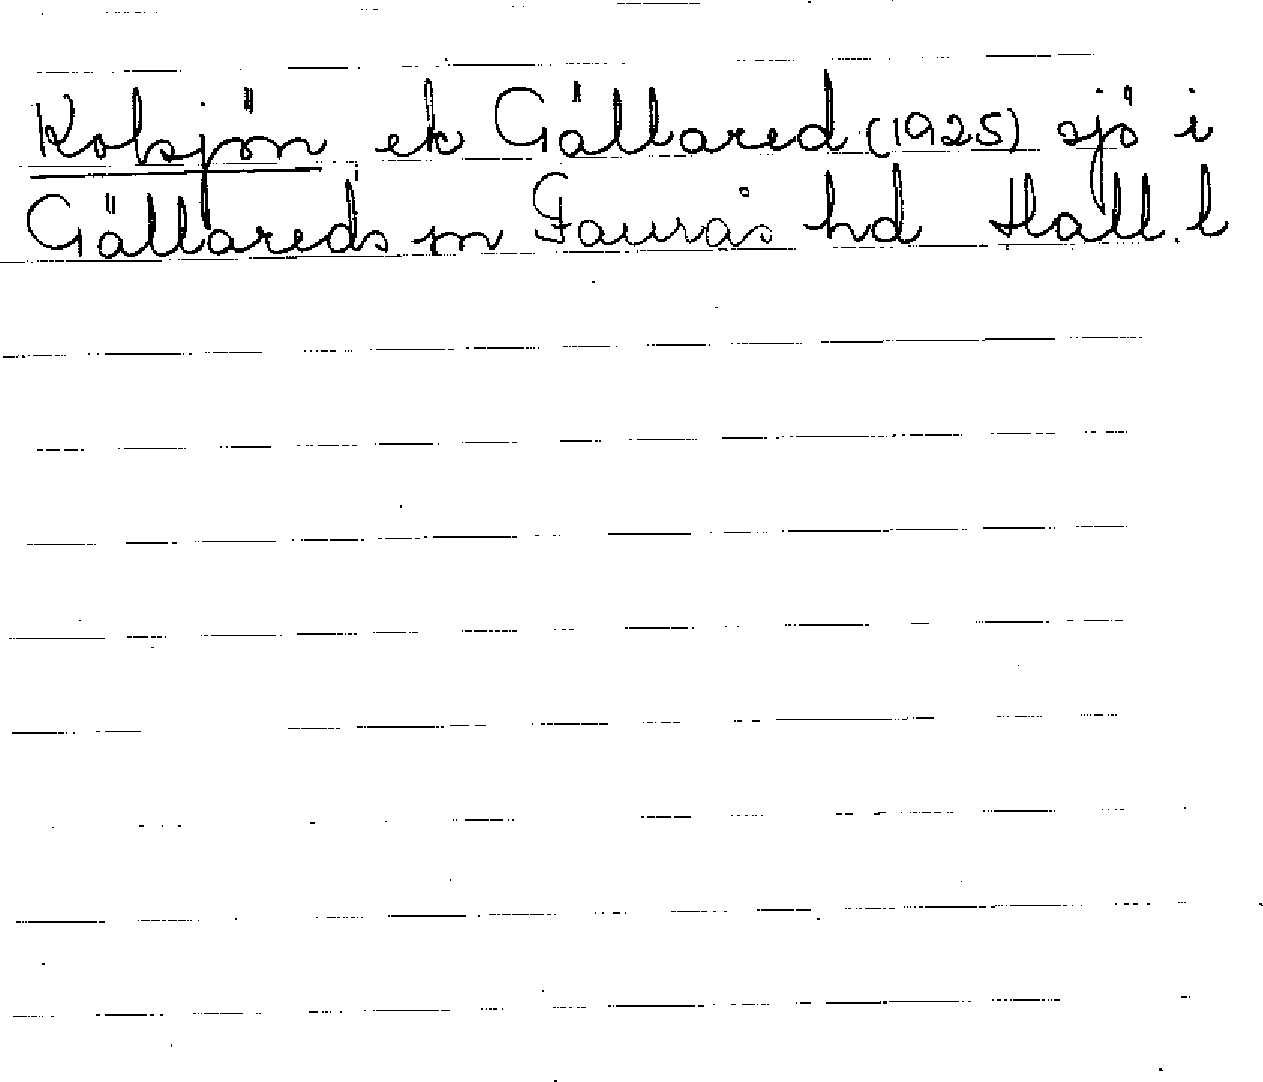 Kobsjön ek Gällared (1925) sjö i
Gällareds sn Faurås hd Hall. l